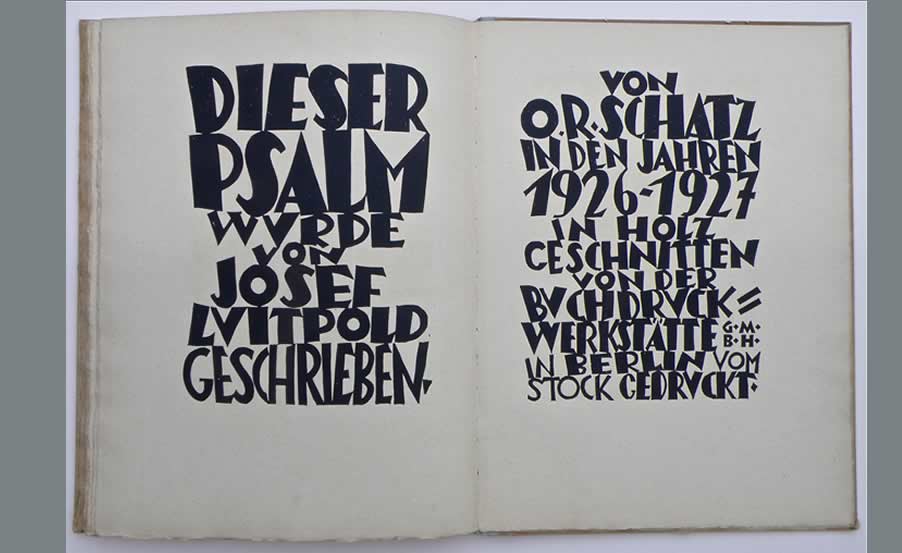 DIESER
PSALM
WVRDE
VON
JOSEF
LVITPOLD
GESCHRIEBEN.
VON
O.R.SCHATZ
IN DEN JAHREN
1926-1927
IN HOLZ
GESCHNITTEN
VON DER
BVCHDRVCK=
WERKSTÄTTE G·M·
B·H·
IN BERLIN VOM
STOCK GEDRVCKT·